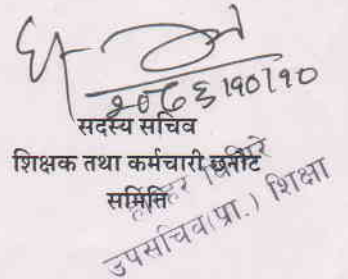 २०७६।१०।१०
सदस्य सचिव
शिक्षक तथा कर्मचारी छनौट
समिति
उपसचिव(प्रा.) शिक्षा